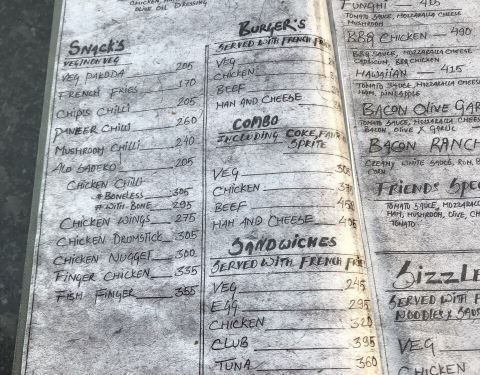 OLIVE OIL DRESSING
SNACKS
VEG/NON VEG
VEG PAKODA 205
FRENCH FRIES 170
CHIPIS CHILLI 205
PANEER CHILLI 260
MUSHROOM CHILLI 240
ALO SADEKO 205
CHICKEN CHILLI
* BONELESS 305
* WITH BONE 295
CHICKEN WINGS 275
CHICKEN DRUMSTICK 305
CHICKEN NUGGET 300
FINGER CHICKEN 355
FISH FINGER 355
BURGER'S
SERVED WITH FRENCH
VEG
CHICKEN
BEEF
HAM AND CHEESE
COMBO
INCLUDING COKE, FANTA
SPRITE
VEG
CHICKEN
BEEF
HAM AND CHEESE
SANDWICHES
SERVED WITH FRENCH FRIES
VEG 245
EGG 295
CHICKEN 320
CLUB 395
TUNA 360
FUNGHI — 415
TOMATO SAUCE, MOZZARALLA CHEESE
MUSHROOM
BBQ CHICKEN — 490
BBQ SAUCE, MOZZARALLA CHEESE
CAPSICUM, BBQ CHICKEN
HAWAIIAN — 415
TOMATO SAUCE, MOZZARALLA CHEESE
HAM, PINEAPPLE
BACON OLIVE GAR
TOMATO SAUCE, MOZZARALLA CHEESE
BACON, OLIVE & GARLIC
BACON RANCH
CREAMY WHITE SAUCE,
CORN
FRIENDS SPEC
TOMATO SAUCE, MOZZARALLA
HAM, MUSHROOM, OLIVE,
TOMATO
SIZZLE
SERVED WITH F
NOODLES & SAU
VEG
CHICKEN